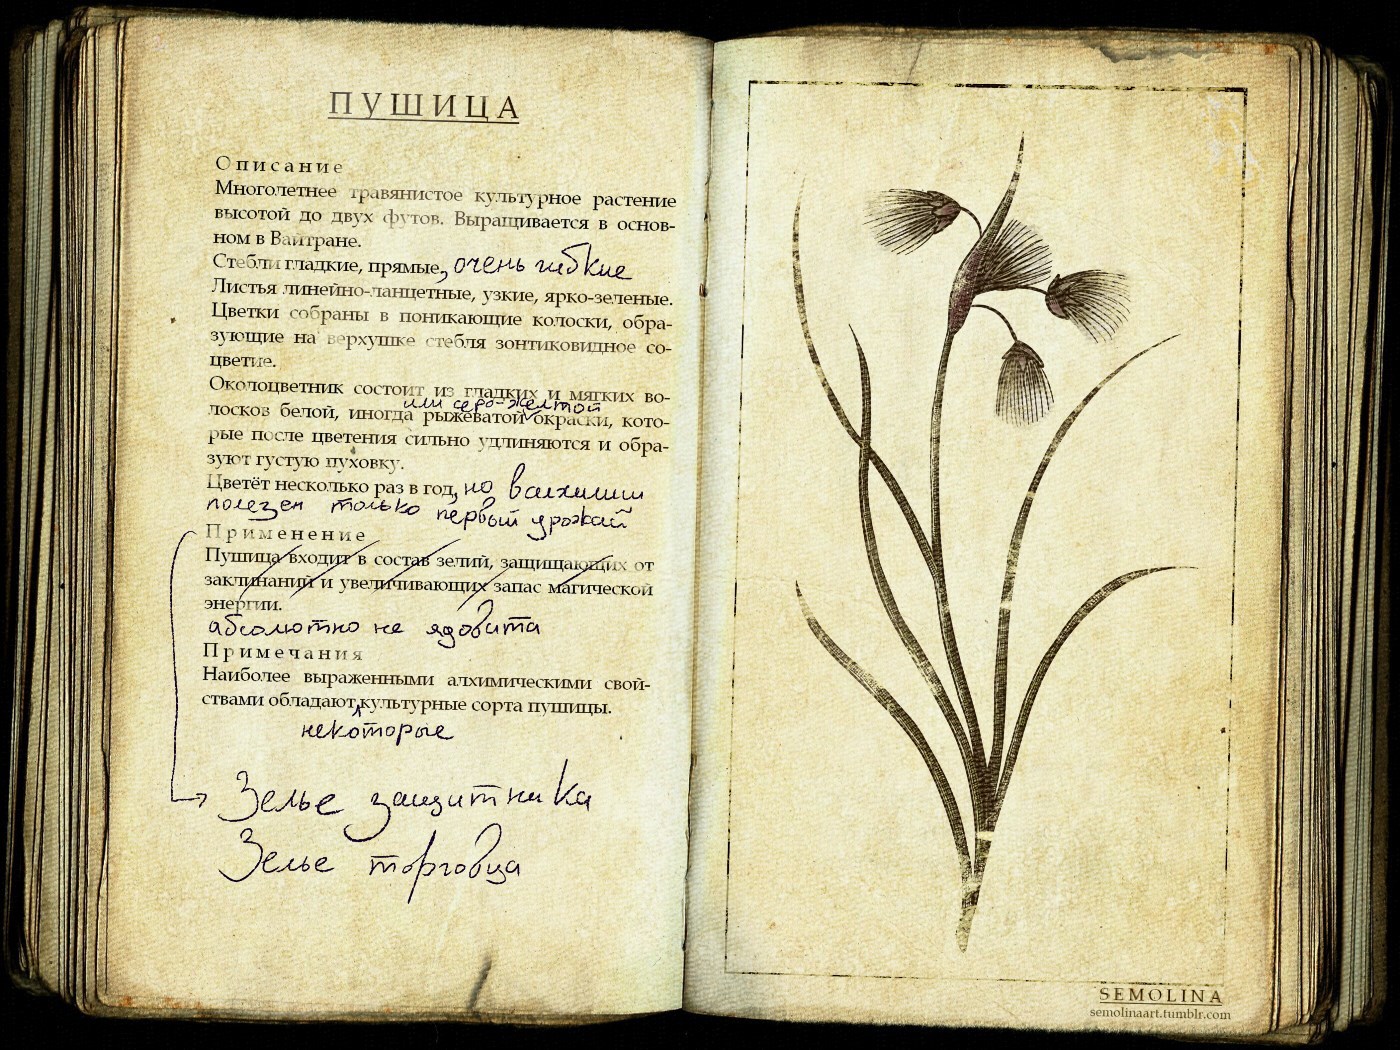 ПУШИЦА
Описание
Многолетнее травянистое культурное растение
высотой до двух футов. Выращивается в основ-
ном в Вайтране.
Стебли гладкие, прямые, очень гибкие
Листья линейно-ланцетные, узкие, ярко-зеленые.
Цветки собраны в поникающие колоски, обра-
зующие на верхушке стебля зонтиковидное со-
цветие.
Околоцветник состоит из гладких и мягких во-
или серо-желтой
лосков белой, иногда рыжеватой окраски, кото-
рые после цветения сильно удлиняются и обра-
зуют густую пуховку.
Цветёт несколько раз в год, но в алхимии
полезен только первый урожай
Применение
Пушица входит в состав зелий, защищающих от
заклинаний и увеличивающих запас магической
энергии.
абсолютно не ядовита
Примечания
Наиболее выраженными алхимическими свой-
ствами обладают культурные сорта пушицы.
некоторые
Зелье защитника
Зелье торговца
SEMOLINA
semolinaart.tumblr.com